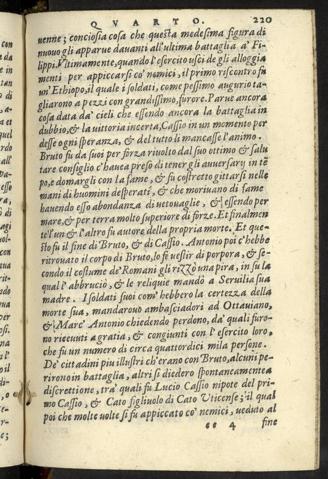 QVARTO. 220
uenne; conciosia cosa che questa medesima figura di
nuouo gli apparue dauanti all'ultima battaglia a' Fi-
lippi. Vltimamente, quando l'esercito uscì de gli alloggia
menti per appiccarsi co' nemici, il primo riscontro fu
un'Ethiopo, il quale i soldati, come pessimo augurio ta-
gliarono a pezzi con grandissimo furore. Parue ancora
cosa data da' cieli che essendo ancora la battaglia in
dubbio, & la uittoria incerta, Cassio in un momento per
desse ogni speranza, & del tutto li mancasse l'animo.
Bruto fu da suoi per forza riuolto dal suo ottimo & salu
tare consiglio c'hauea preso di tener gli auuersarÿ in tē
po, e domargli con la fame, & fu costretto gittarsi nelle
mani di huomini desperati, & che moriuano di fame
hauendo esso abondanza di uetouaglie, & essendo per
mare, & per terra molto superiore di forze. Et finalmen
te l'un & l'altro fu autore della propria morte. Et que-
sto fu il fine di Bruto, & di Cassio. Antonio poi c'hebbe
ritrouato il corpo di Bruto, lo fè uestir di porpora, & se-
condo il costume de' Romani gli rizzò una pira, in su la
qual l'abbruciò, & le reliquie mandò a Seruilia sua
madre. I soldati suoi com'hebbero la certezza della
morte sua, mandarono ambasciadori ad Ottauiano,
& Marc'Antonio chiedendo perdono, da' quali furo-
no riceuuti a gratia, & congiunti con l'esercito loro,
che fu un numero di circa quattordici mila persone.
De' cittadini piu illustri ch'erano con Bruto, alcuni pe-
rirono in battaglia, altri si diedero spontaneamente a
discrettione, tra' quali fu Lucio Cassio nipote del pri-
mo Cassio, & Cato figliuolo di Cato Vticense; il qual
poi che molte uolte si fu appiccato co' nemici, ueduto al
ee 4 fine